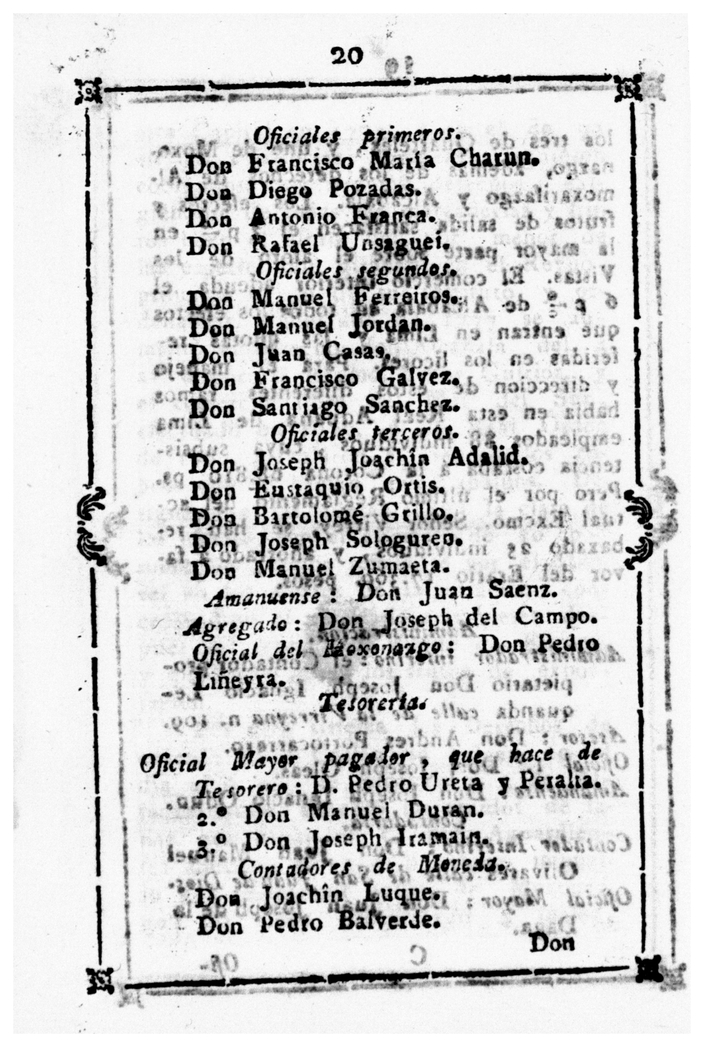 20
Oficiales primeros.
Don Francisco María Charun.
Don Diego Pozadas.
Don Antonio Franca.
Don Rafael Unsaguei.
Oficiales segundos.
Don Manuel Ferreiros.
Don Manuel Jordan.
Don Juan Casas.
Don Francisco Galvez.
Don Santiago Sanchez.
Oficiales terceros.
Don Joseph Joachîn Adalid.
Don Eustaquio Ortis.
Don Bartolomé Grillo.
Don Joseph Sologuren.
Don Manuel Zumaeta.
Amanuense : Don Juan Saenz.
Agregado : Don Joseph del Campo.
Oficial del Moxonazgo : Don Pedro
Liñeyra.
Tesorería.
Oficial Mayor pagador, que hace de
Tesorero : D. Pedro Ureta y Peralta.
2.º Don Manuel Duran.
3.º Don Joseph Iramain.
Contadores de Moneda.
Don Joachîn Luque.
Don Pedro Balverde.
Don